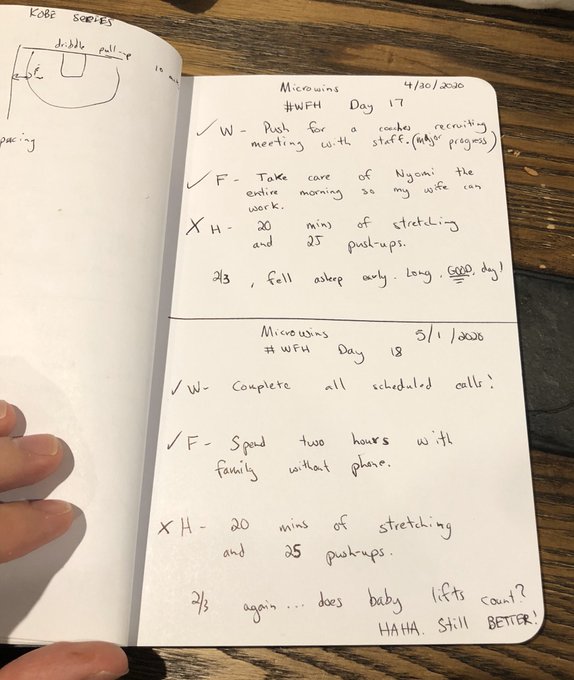 KOBE SERIES
dribble pull-up
10 m
pacing
Microwins 4/30/2020
#WFH Day 17
✓ W - Push for a coaches recruiting
meeting with staff. (major progress)
✓ F - Take care of Nyomi the
entire morning so my wife can
work.
X H - 20 mins of stretching
and 25 push-ups.
2/3, fell asleep early. Long, GOOD, day!
Microwins 5/1/2020
# WFH Day 18
✓ W - Complete all scheduled calls!
✓ F - Spend two hours with
family without phone.
X H - 20 mins of stretching
and 25 push-ups.
2/3 again... does baby lifts count?
HAHA. Still BETTER!